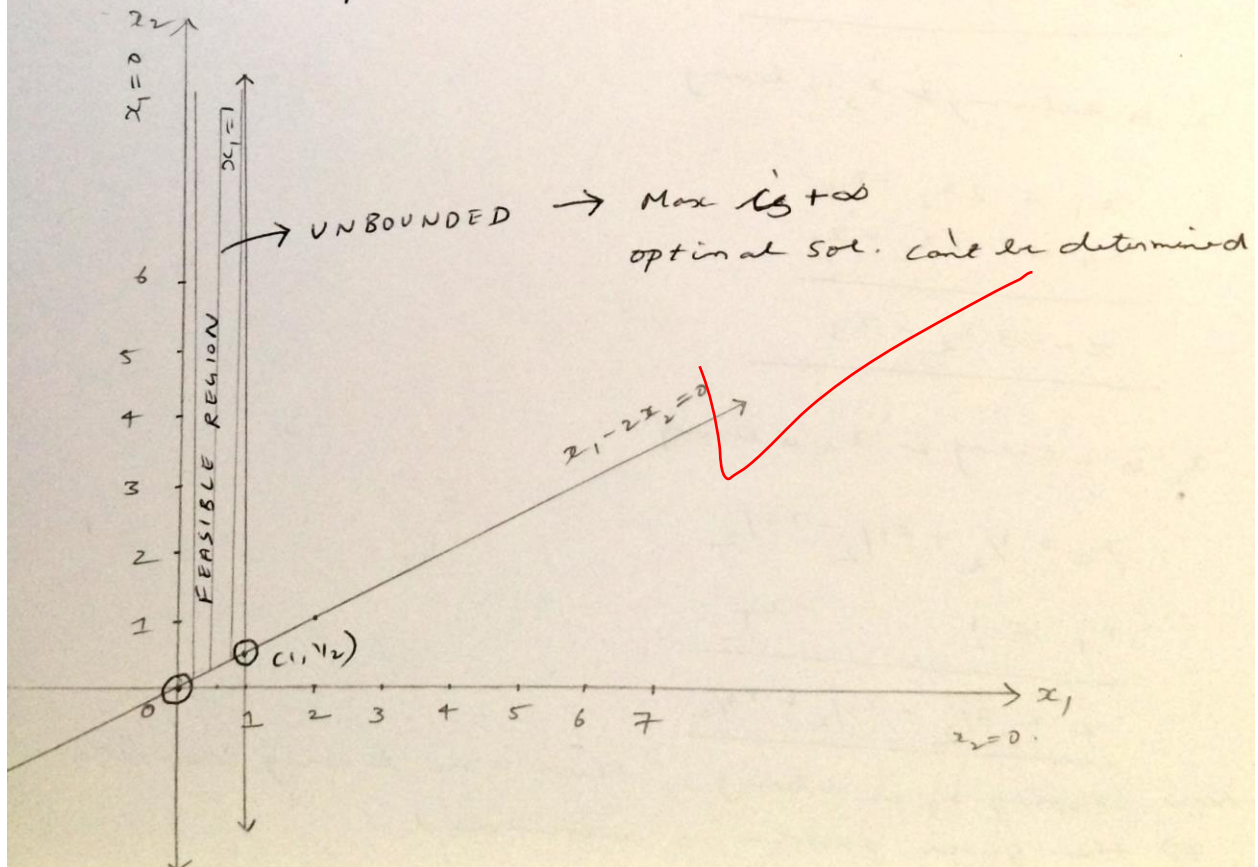 x₂
x₁=0
x₁=1
→ UNBOUNDED → Max is +∞
optimal sol. can't be determined
6
5
4
3
2
1
FEASIBLE REGION
x₁-2x₂=0
(1, 1/2)
0 1 2 3 4 5 6 7
x₁
x₂=0.